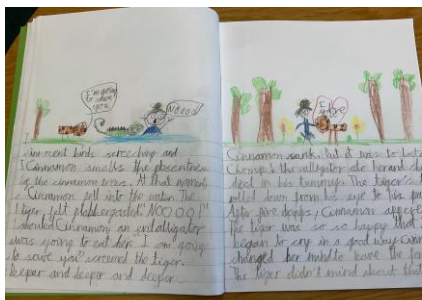 I'm going
to save
you
NOOOO!
innocent birds screeching and
Cinnamon smells the
in the cinnamon trees. At that moment
Cinnamon fell into the water. The
tiger felt flabbergasted "NOOOO!"
shouted Cinnamon, an evil alligator
was going to eat her. "I am going
to save you" screamed the tiger.
Deeper and deeper and deeper
Cinnamon sank. But it was to late
the alligator ate her and she
died in his tummy. The tiger's
rolled down from his eye to his
After five days, Cinnamon
The tiger was so so happy that
began to cry in a good way
changed her mind to leave the
The tiger didn't mind about that